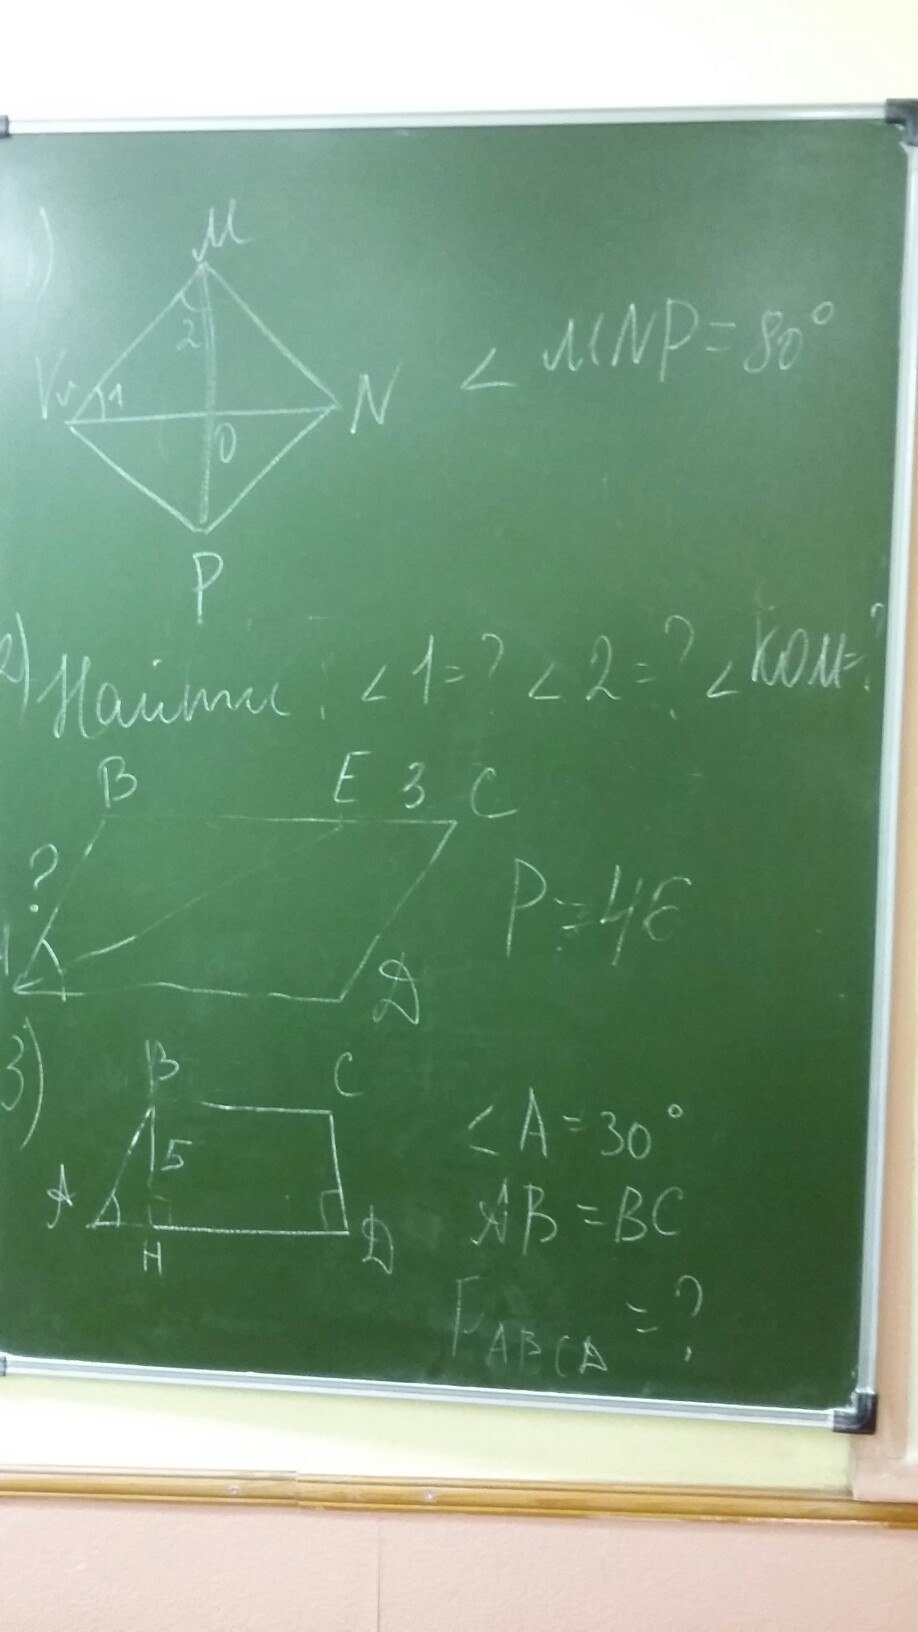 1)
M
2
K 1
N
O
P
∠ MNP = 80°
2) Найти: ∠1=? ∠2=? ∠KOM=?
B E 3 C
?
A
D
P = 46
3)
B C
5
A
H
D
∠A = 30°
AB = BC
P ABCD = ?